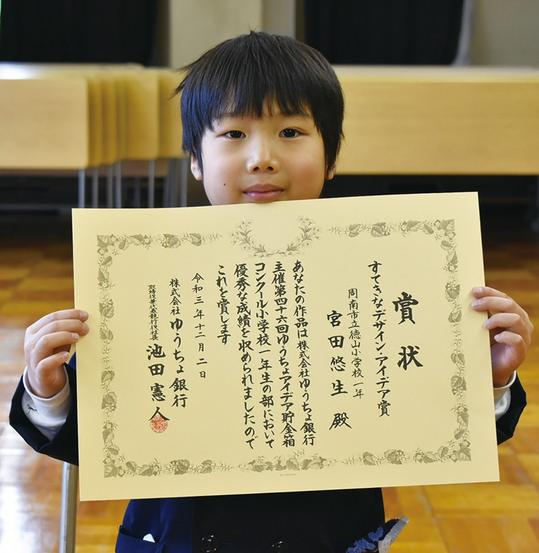 賞状
すてきなデザイン・アイデア賞
周南市立徳山小学校一年
宮田悠生 殿
あなたの作品は株式会社ゆうちょ銀行
主催第四十六回ゆうちょアイデア貯金箱
コンクール小学校一年生の部において
優秀な成績を収められましたので
これを賞します
令和三年十二月二日
株式会社ゆうちょ銀行
取締役兼代表執行役社長 池田憲人